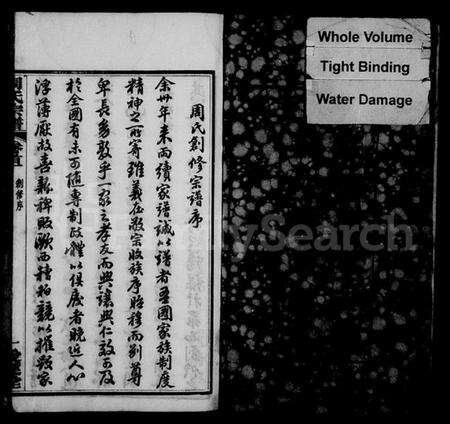 周氏創修宗譜序
余卅年來两續家譜誠以譜者吾國家族制度
精神之所寄雖義在敬宗收族序昭穆而别尊
卑長爲敦乎一家之孝友而興讓興仁效可及
於全國有未可随專制政體以俱廢者晚近人心
浮薄厭故喜新稗敗歐西種物競以摧毀家
周氏宗譜
卷首
創修序
Whole Volume
Tight Binding
Water Damage
FamilySearch